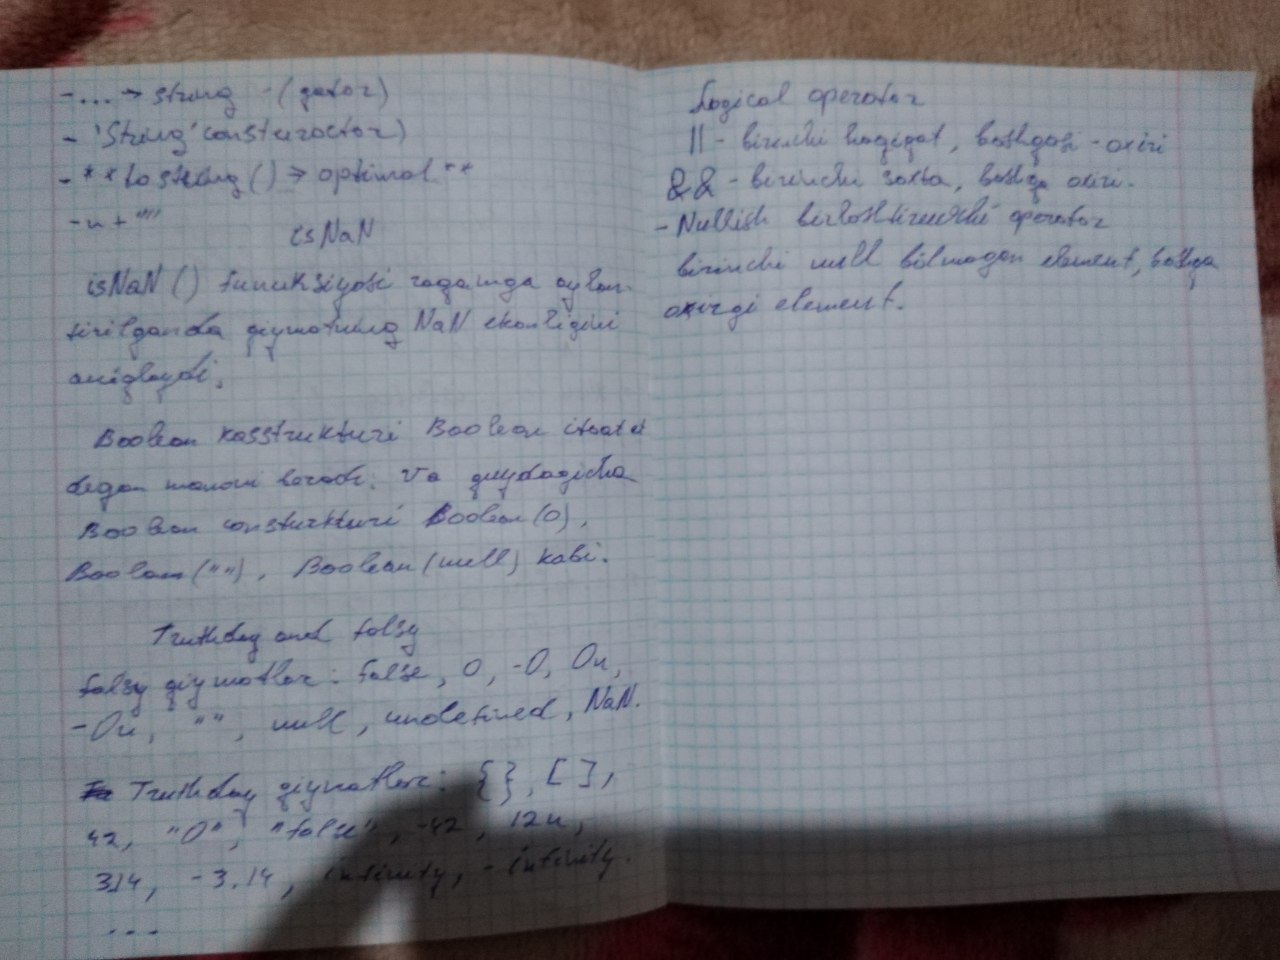 -... → string - (qator)
- 'String' constuructor)
- ** toString() → optimal **
- n + ""
isNaN
isNaN() funuksiyasi raqamga aylan-
tirilganda qiymatning NaN ekanligini
aniqlaydi.
Boolean kasstrukturi Boolean
degan manoni beradi. Va quydagicha
Boolean consturkturi Boolean(0),
Boolean(""), Boolean(null) kabi.
Truthday and falsy
falsy qiymatlar: false, 0, -0, 0n,
-0n, "", null, undefined, NaN.
Truthday qiymatlar: {}, [],
42, "0", "false", -42, 12n,
3.14, -3.14, infinity, -infinity.
...
Logical operator
|| - birinchi haqiqat, boshqasi - oxiri
&& - birinchi soxta, boshqa oxiri.
- Nullish birlashtiruvchi operator
birinchi null bilmagan element, boshqa
oxirgi element.